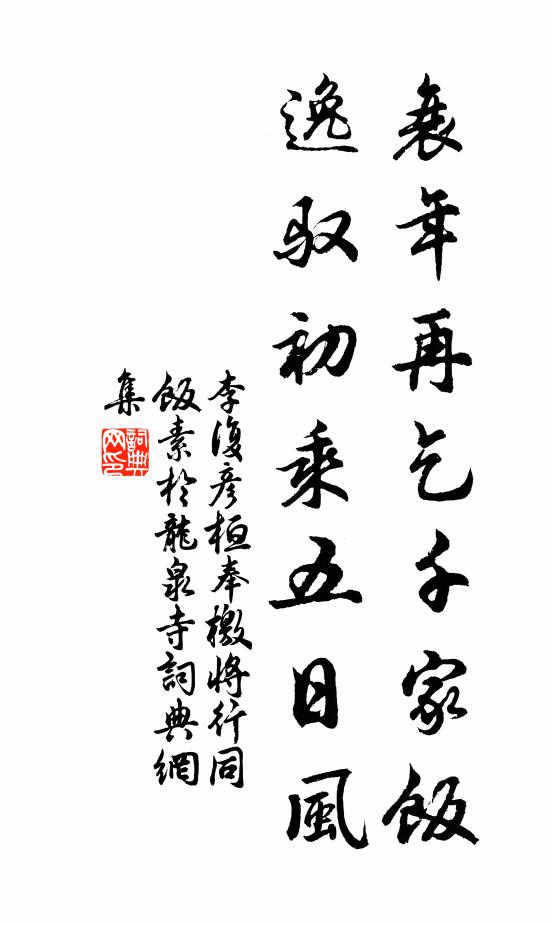 衰年再乞千家飯
逸馭初乘五日風
李復彥桓奉檄將行同
飯素於龍泉寺詞典網
集
詞典
网印